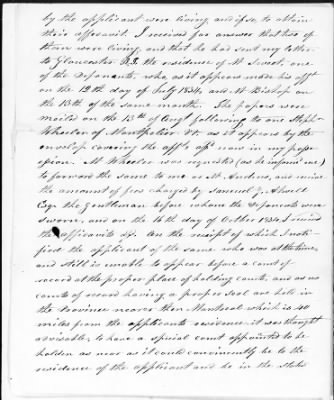 by the applicant were living, and if so to obtain
their affidavit. I received for answer that two of
them were living, and that he had sent my letter
to Gloucester R.I. the residence of M Sweet, one
of the Deponants, who, as it appears made his afft
on the 12th day of July 1834, and M Bishop on
the 15th of the same month. The papers were
mailed on the 13th of Augt following to one Steph
Wheeler of Montpelier Vt. as it appears by the
envelop covering the affts now in my posse
ssion. M Wheeler was requested (as he informs me)
to forward the same to me or St Andrus, and
the amount of fees charged by Samuel Y. Atwell
Esqr the Gentleman before whom the Deponents were
sworn, and on the 16th day of October 1834 I recied
the affidavits &c. On the receipt of which I noti-
fied the applicant of the same who was at the time,
and still is unable to appear before a court of
record at the proper place of holding courts, and as no
courts of record having a proper seal are held in
the Province nearer then Montreal which is 40
miles from the applicants residence it was thought
advisable, to have a special court appointed to be
holden as near as it could conveniently be to the
residence of the applicant and be in the states